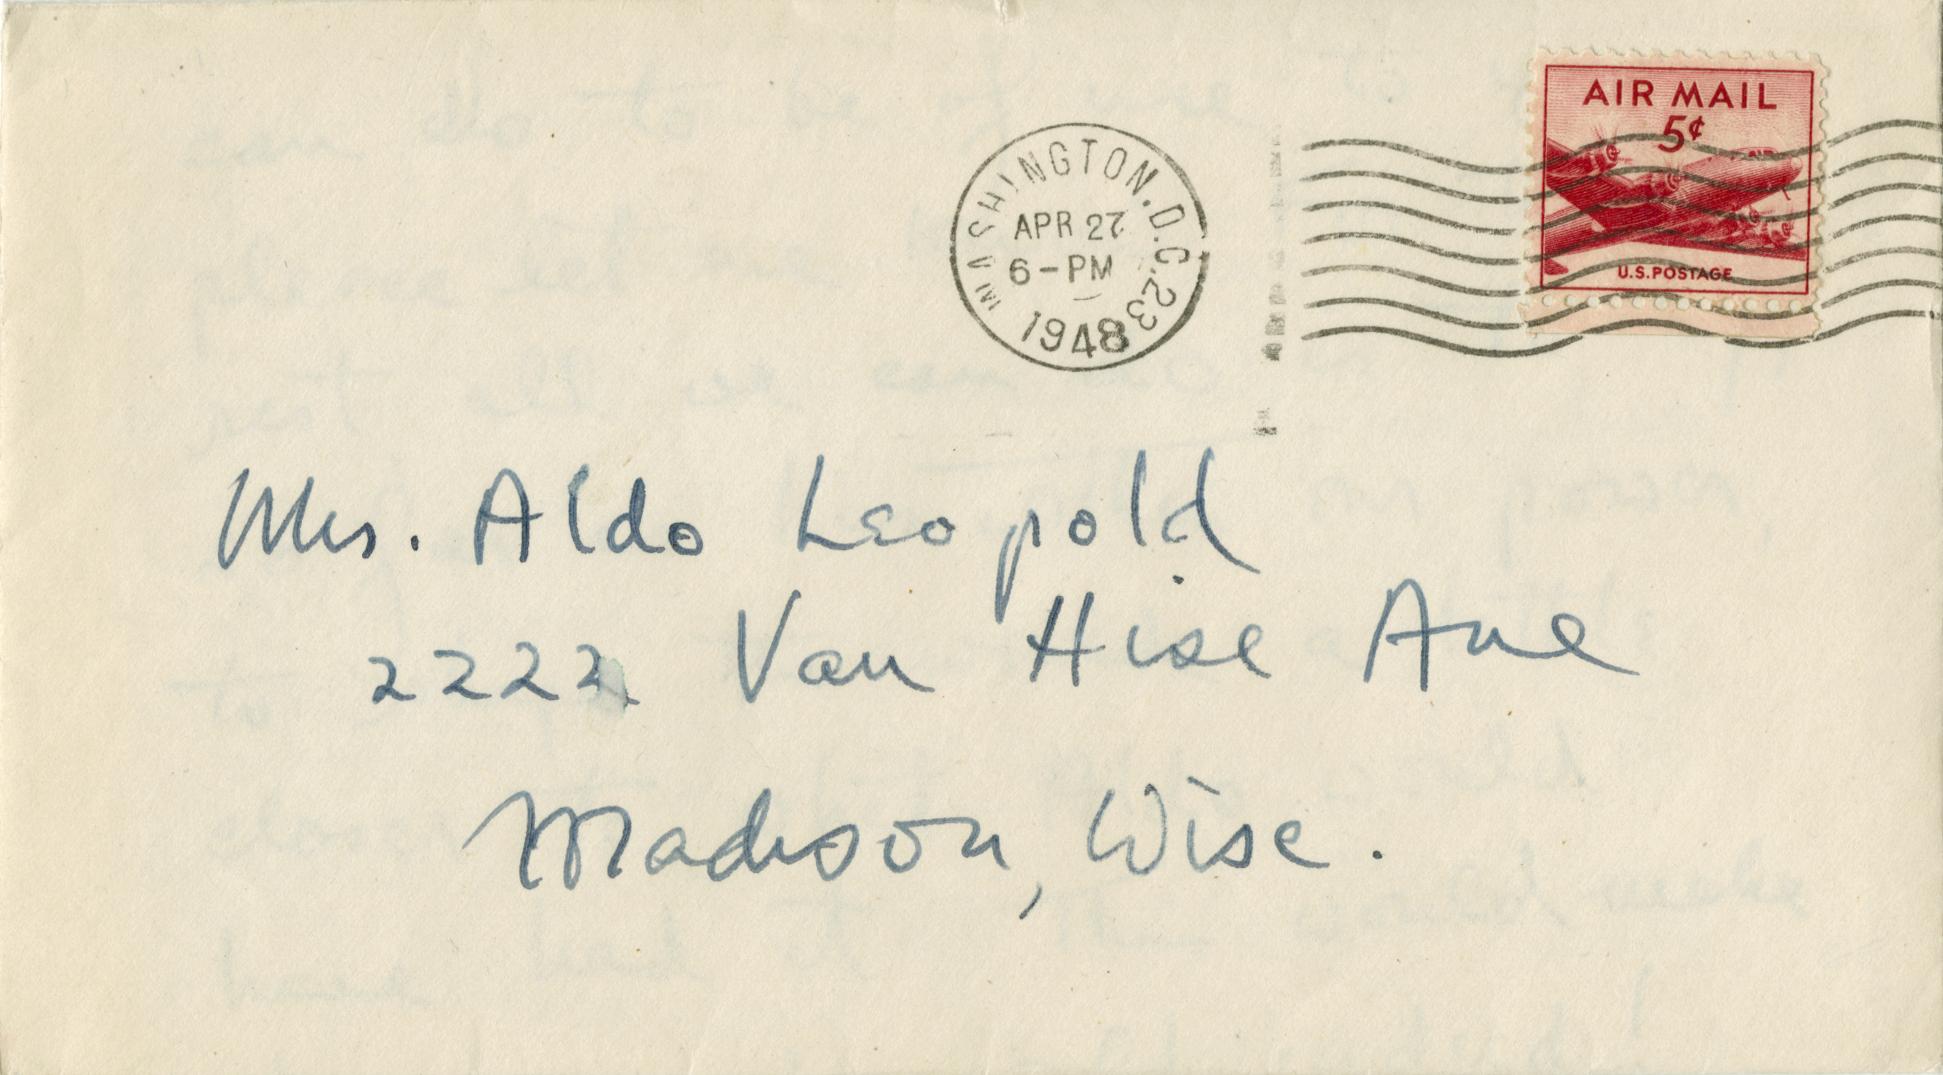 AIR MAIL
5¢
U.S. POSTAGE
WASHINGTON, D.C. 23
APR 27
6-PM
1948
Mrs. Aldo Leopold
2222 Van Hise Ave
Madison, Wisc.